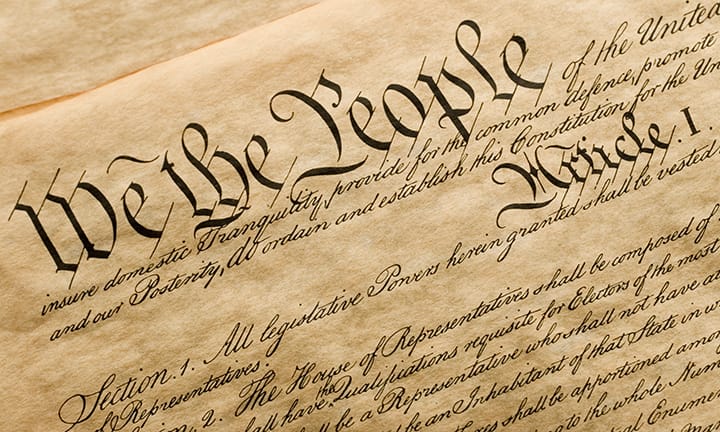 We the People of the United
insure domestic Tranquility, provide for the common defence, promote
and our Posterity, do ordain and establish this Constitution for the Un
Article. I.
Section. 1. All legislative Powers herein granted shall be vested
of Representatives.
n. 2. The House of Representatives shall be composed of
hall have the Qualifications requisite for Electors of the most
ll be a Representative who shall not have a
be an Inhabitant of that State in w
es shall be apportioned amon
to the whole Num
Enumer